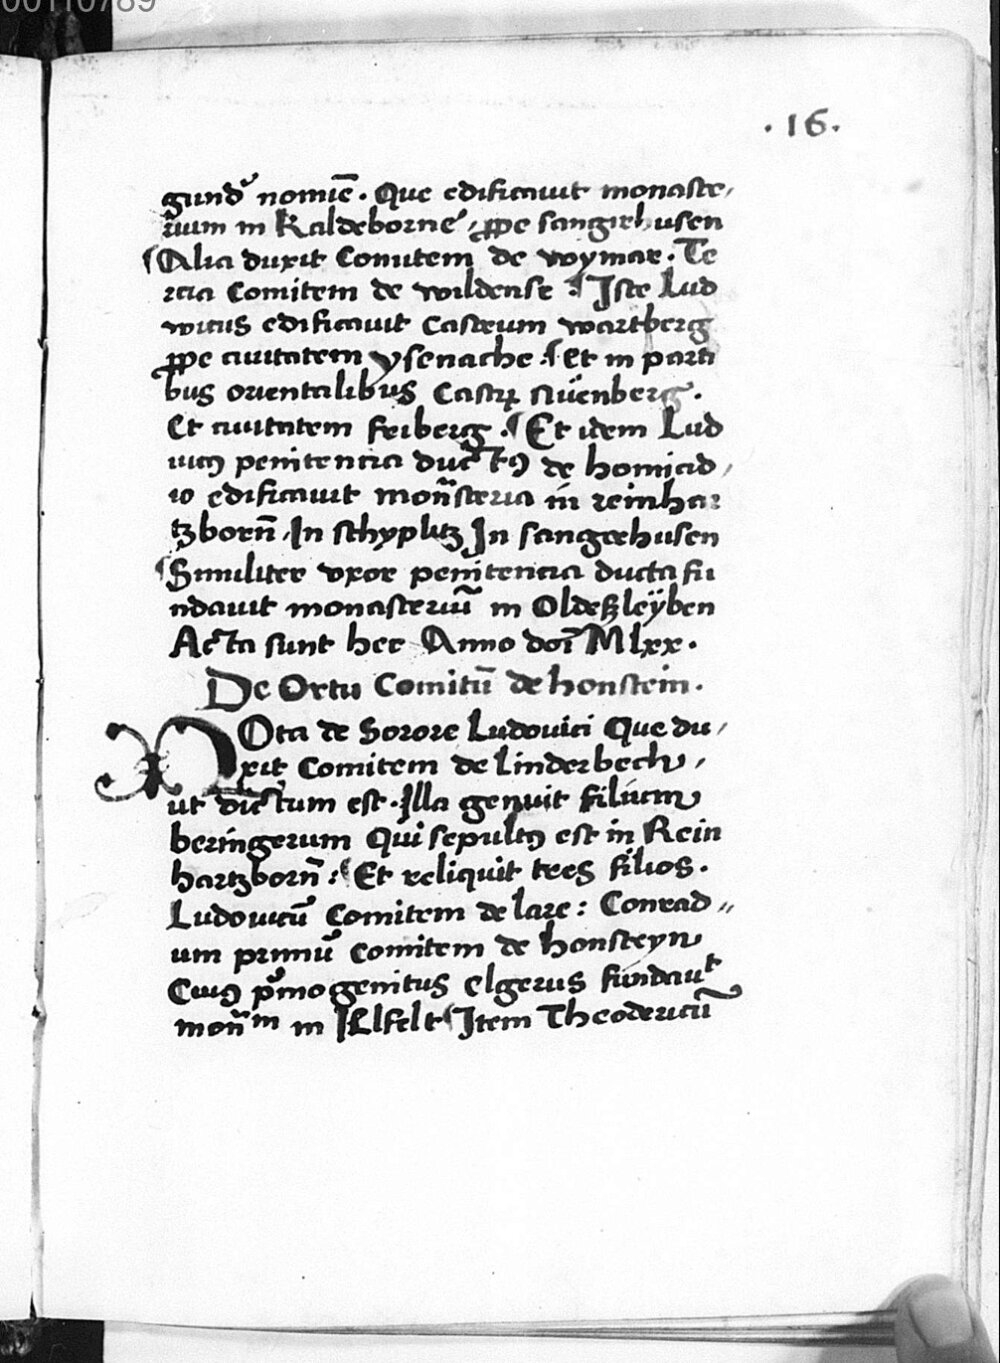 00110789
. 16 .
gund᷑ nomiē . Que edificauit monaste,
rium in Kaldeborne , ꝓpe sangirhusen
Alia duxit Comitem de wymar . Te
rcia Comitem de wildense : Iste Lud
wicus edificauit Castrum wartberg
ꝓpe ciuitatem ysenache . Et in parti
bus orientalibus Castꝝ nüenberg .
Et ciuitatem freiberg . Et idem Lud
uicꝯ penitencia ductꝯ de homicid,
io edificauit moñsteria in reinhar
tzborñ , In schypĺitz In sangerhusen
Similiter vxor penitencia ducta fu
ndauit monasteriū in Oldeßleÿben
Acta sunt hec Anno doī Mlxx .
De Ortu Comitū de honstein .
NOta de Sorore Ludouici Que du,
xit Comitem de linderbech ,
ut dictum est . Illa genuit filium
beringerum Qui sepultꝯ est in Rein
hartzborñ : Et reliquit tres filios .
Ludouicū Comitem de lare : Conrad„
um primū comitem de honsteyn
Cuiꝯ p̊mogenitus Elgerus fundauᵗ
moñᵐ in Ilfelt Item Theodericū